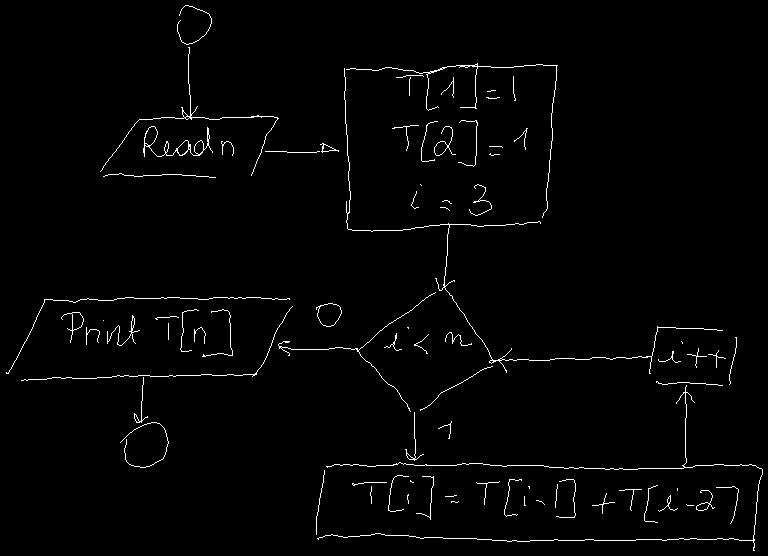 Read n
T[1]=1
T[2]=1
i=3
i< n
0
Print T[n]
1
i++
T[i]=T[i-1]+T[i-2]